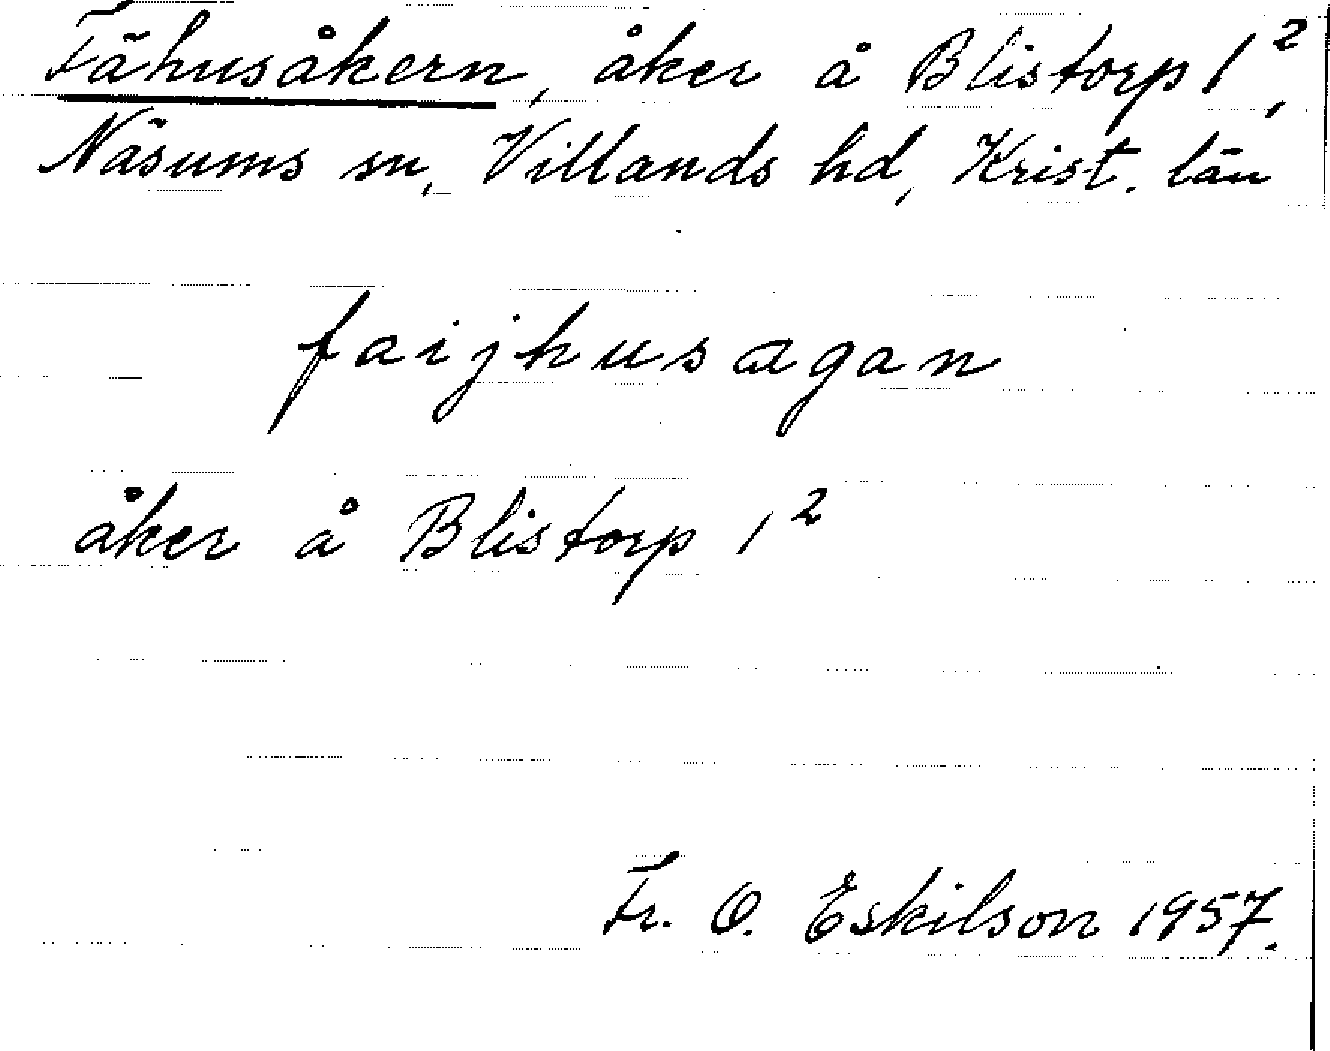 Fähusåkern, åker å Blistorp 1²,
Näsums sn, Villands hd, Krist. län
faijhusagan
åker å Blistorp 1²
Fr. O. Eskilson 1957.